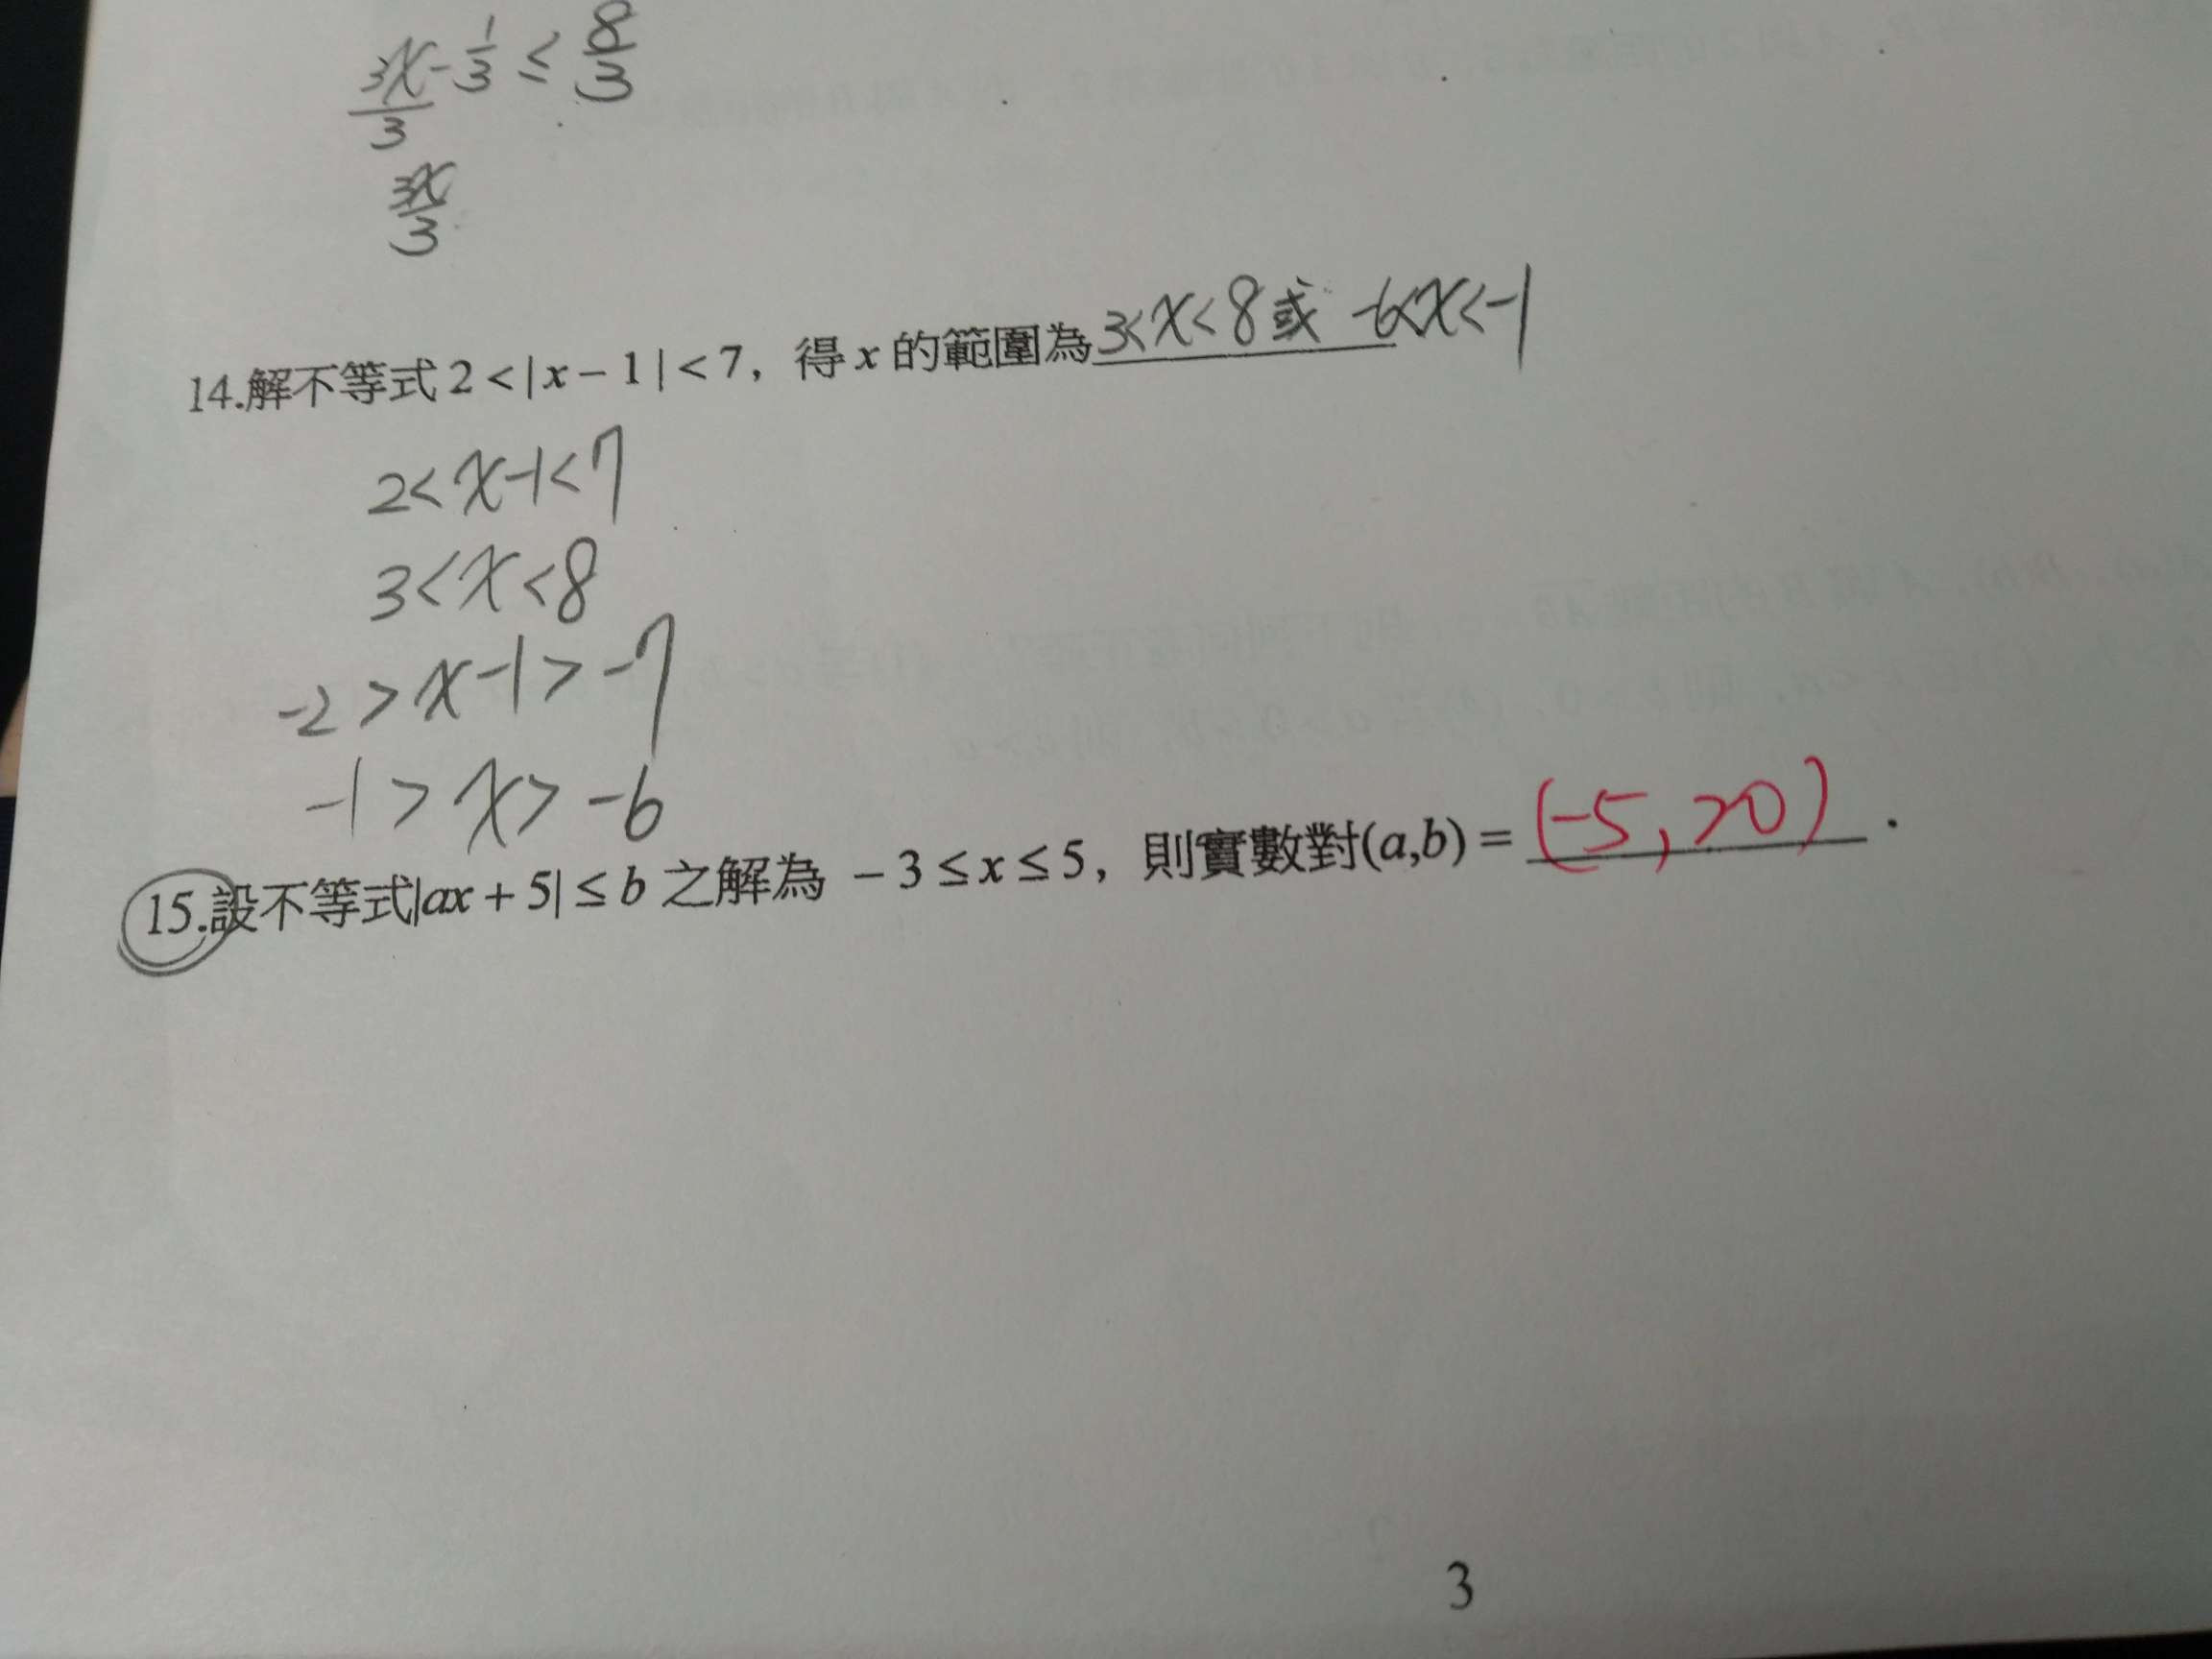 3x/3 - 1/3 ≤ 8/3
3x/3
14.解不等式 2 < | x − 1 | < 7，得 x 的範圍為 3<x<8或 -6<x<-1
2<x-1<7
3<x<8
-2>x-1>-7
-1>x>-6
15.設不等式|ax + 5| ≤ b 之解為 − 3 ≤ x ≤ 5，則實數對(a,b) = (-5, 20) .
3